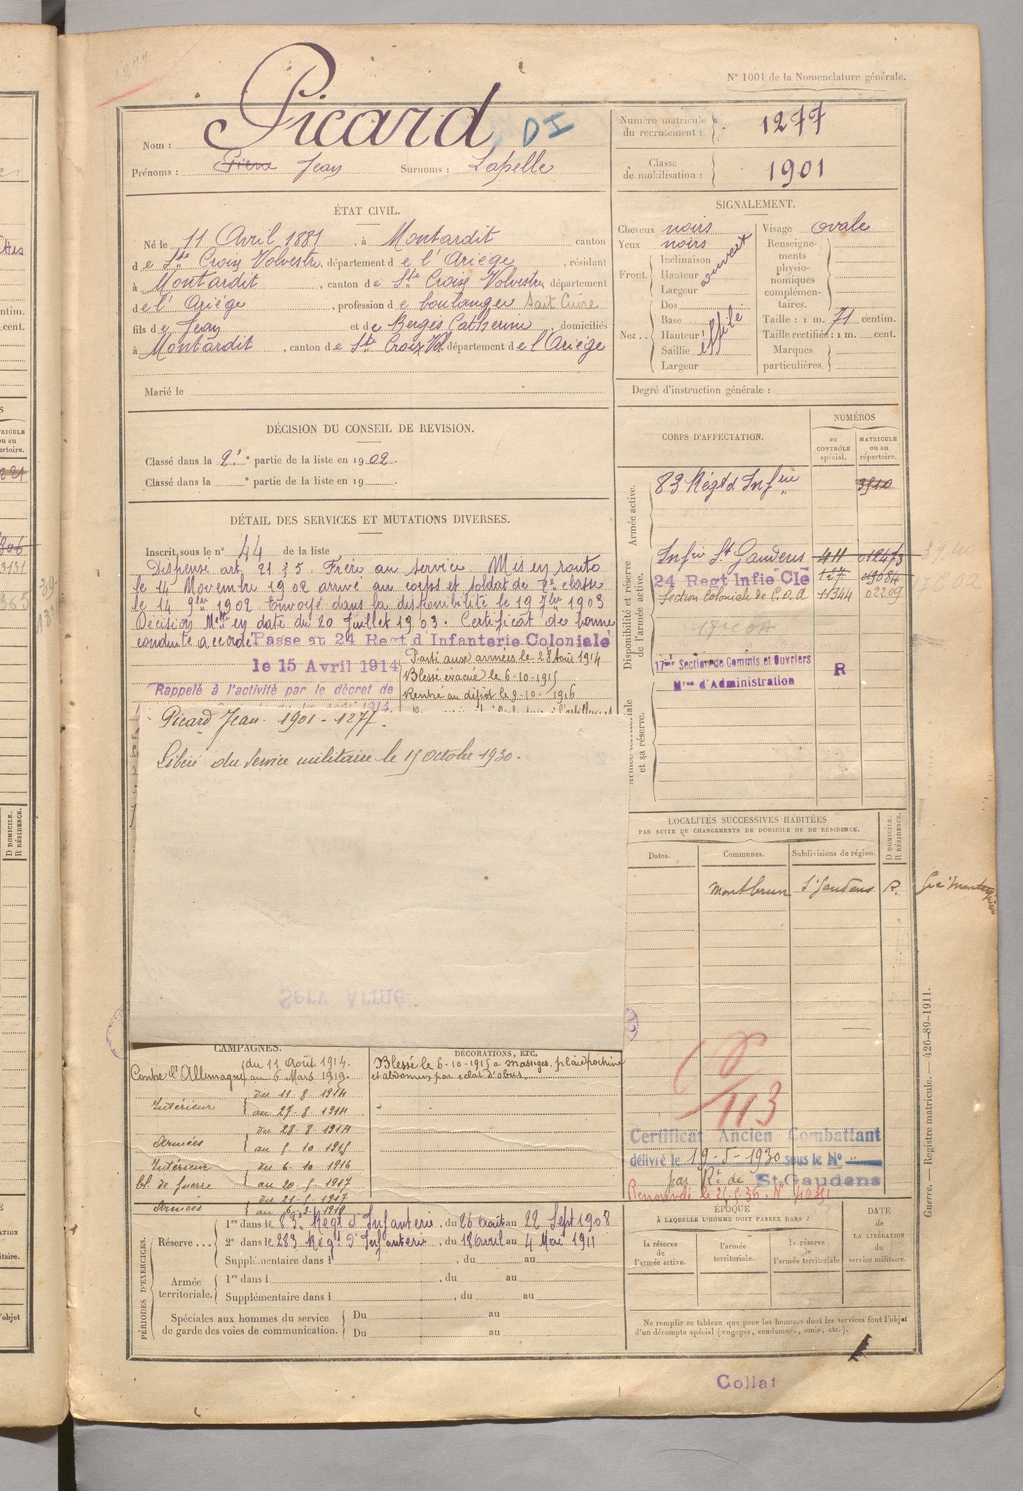 N° 1001 de la Nomenclature générale.
Nom : Picard DI
Prénoms : Pierre Jean Surnoms : Lapelle
Numéro matricule du recrutement : 1277
Classe de mobilisation : 1901
ÉTAT CIVIL.
Né le 11 Avril 1881, à Montardit canton
de Ste Croix Volvestre, département de l'Ariège, résidant
à Montardit, canton de Ste Croix Volvestre, département
de l'Ariège, profession de boulanger Sait Cuire
fils de Jean et de Bergès Catherine, domiciliés
à Montardit, canton de Ste Croix Vol. département de l'Ariège
Marié le
SIGNALEMENT.
Cheveux noirs
Yeux noirs
Front. Inclinaison Hauteur Largeur ouvert
Nez Dos Base Hauteur Saillie Largeur effilé
Visage ovale
Renseignements physionomiques complémentaires.
Taille : 1 m. 71 centim.
Taille rectifiée : 1 m. cent.
Marques particulières.
Degré d'instruction générale :
DÉCISION DU CONSEIL DE REVISION.
Classé dans la 2e partie de la liste en 1902.
Classé dans la e partie de la liste en 19
DÉTAIL DES SERVICES ET MUTATIONS DIVERSES.
Inscrit sous le n° 44 de la liste
Dispensé art. 21 § 5. Frère au service. Mis en route
le 14 Novembre 1902 arrivé au corps et soldat de 2e classe
le 14 9bre 1902 Envoyé dans la disponibilité le 19 7bre 1903
Décision Melle en date du 20 Juillet 1903. Certificat de bonne
conduite accordé Passé au 24 Regt d'Infanterie Coloniale
le 15 Avril 1914
Parti aux armées le 28 Août 1914
Blessé évacué le 6-10-1915
Rappelé à l'activité par le décret de
Rentré au dépôt le 9-10-1916
Picard Jean 1901 - 1277
Libéré du Service militaire le 15 octobre 1930.
Serv Armé
CORPS D'AFFECTATION.
NUMÉROS
au CONTRÔLE spécial.
MATRICULE ou au répertoire.
Armée active.
83 Régt d'Infrie 3910
Disponibilité et réserve de l'armée active.
Infrie St Gaudens 411 012473
24 Regt Infie Cle 127 09084
Section Coloniale de C.O.A 11344 02209
17me Section de Commis et Ouvriers
Mres d'Administration R
et sa réserve.
LOCALITÉS SUCCESSIVES HABITÉES
PAR SUITE DE CHANGEMENTS DE DOMICILE OU DE RÉSIDENCE.
Dates. Communes. Subdivisions de région. D DOMICILE. R RÉSIDENCE.
Montbrun St Gaudens R.
113
Certificat Ancien Combattant
délivré le 19-5-1930 sous le N°
par Rt de St Gaudens
CAMPAGNES.
Contre l'Allemagne du 11 Août 1914 au 6 Mars 1919.
Intérieur du 11-8-1914 au 27-8-1914
Armées du 28-8-1914 au 5-10-1915
Intérieur bl. de guerre du 6-10-1916 au 20-5-1917
Armées du 21-5-1917 au 6-3-1919
DÉCORATIONS, ETC.
Blessé le 6-10-1915 à Massiges, plaie poitrine
et abdomen par éclat d'obus.
PÉRIODES D'EXERCICES.
Réserve 1re dans le 83e Régt d'Infanterie, du 26 Août au 22 Sept 1908
2e dans le 283 Régt d'Infanterie, du 18 Avril au 4 Mai 1911
Supplémentaire dans l , du au
Armée territoriale. 1re dans l , du au
Supplémentaire dans l , du au
Spéciales aux hommes du service de garde des voies de communication. Du au
Du au
ÉPOQUE À LAQUELLE L'HOMME DOIT PASSER DANS :
la réserve de l'armée active.
l'armée territoriale.
la réserve de l'armée territoriale
DATE de LA LIBÉRATION du service militaire.
Ne remplir ce tableau que pour les hommes dont les services font l'objet
d'un décompte spécial (engagés, condamnés, omis, etc.).
Guerre. — Registre matricule. — 426-89-1911.
Collat